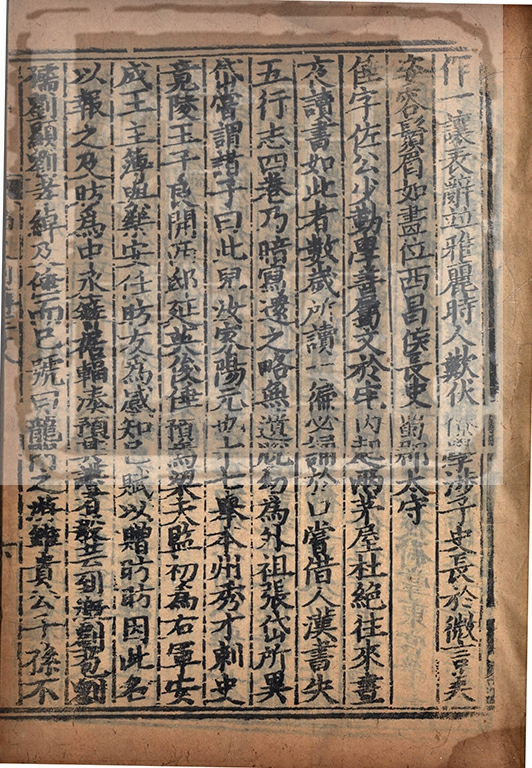 作一讓表辭並雅麗時人歎伏學涉子史長於微言美
姿容鬚眉如畫位西昌侯長史蜀郡太守
倕字佐公少勤學善屬文於宅內起兩茅屋杜絕往來晝
夜讀書如此者數歲所讀一遍必誦於口嘗借人漢書失
五行志四卷乃暗寫還之略無遺脫幼為外祖張岱所異
岱嘗謂諸子曰此兒汝家陽元也十七舉本州秀才刺史
竟陵王子良開西邸延英俊倕預焉梁天監初為右軍安
成王主簿與樂安任昉友為感知己賦以贈昉昉因此名
以報之及昉為中丞簪裾輻湊預其讌者殷芸到溉劉苞劉
孺劉顯劉孝綽及倕而已號曰龍門之游雖貴公子孫不